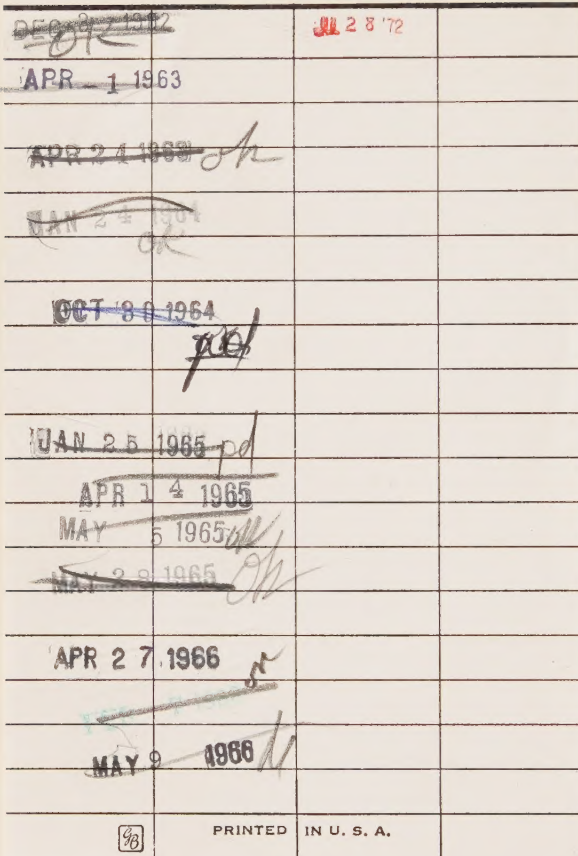 ok
APR - 1 1963
APR 24 1963 ok
JAN 24 1964
ok
OCT 30 1964
pd
JAN 25 1965 pd
APR 14 1965
MAY 5 1965 ok
MAY 28 1965 ok
APR 27 1966
MAY 9 1966
JUL 28 '72
GB PRINTED IN U. S. A.